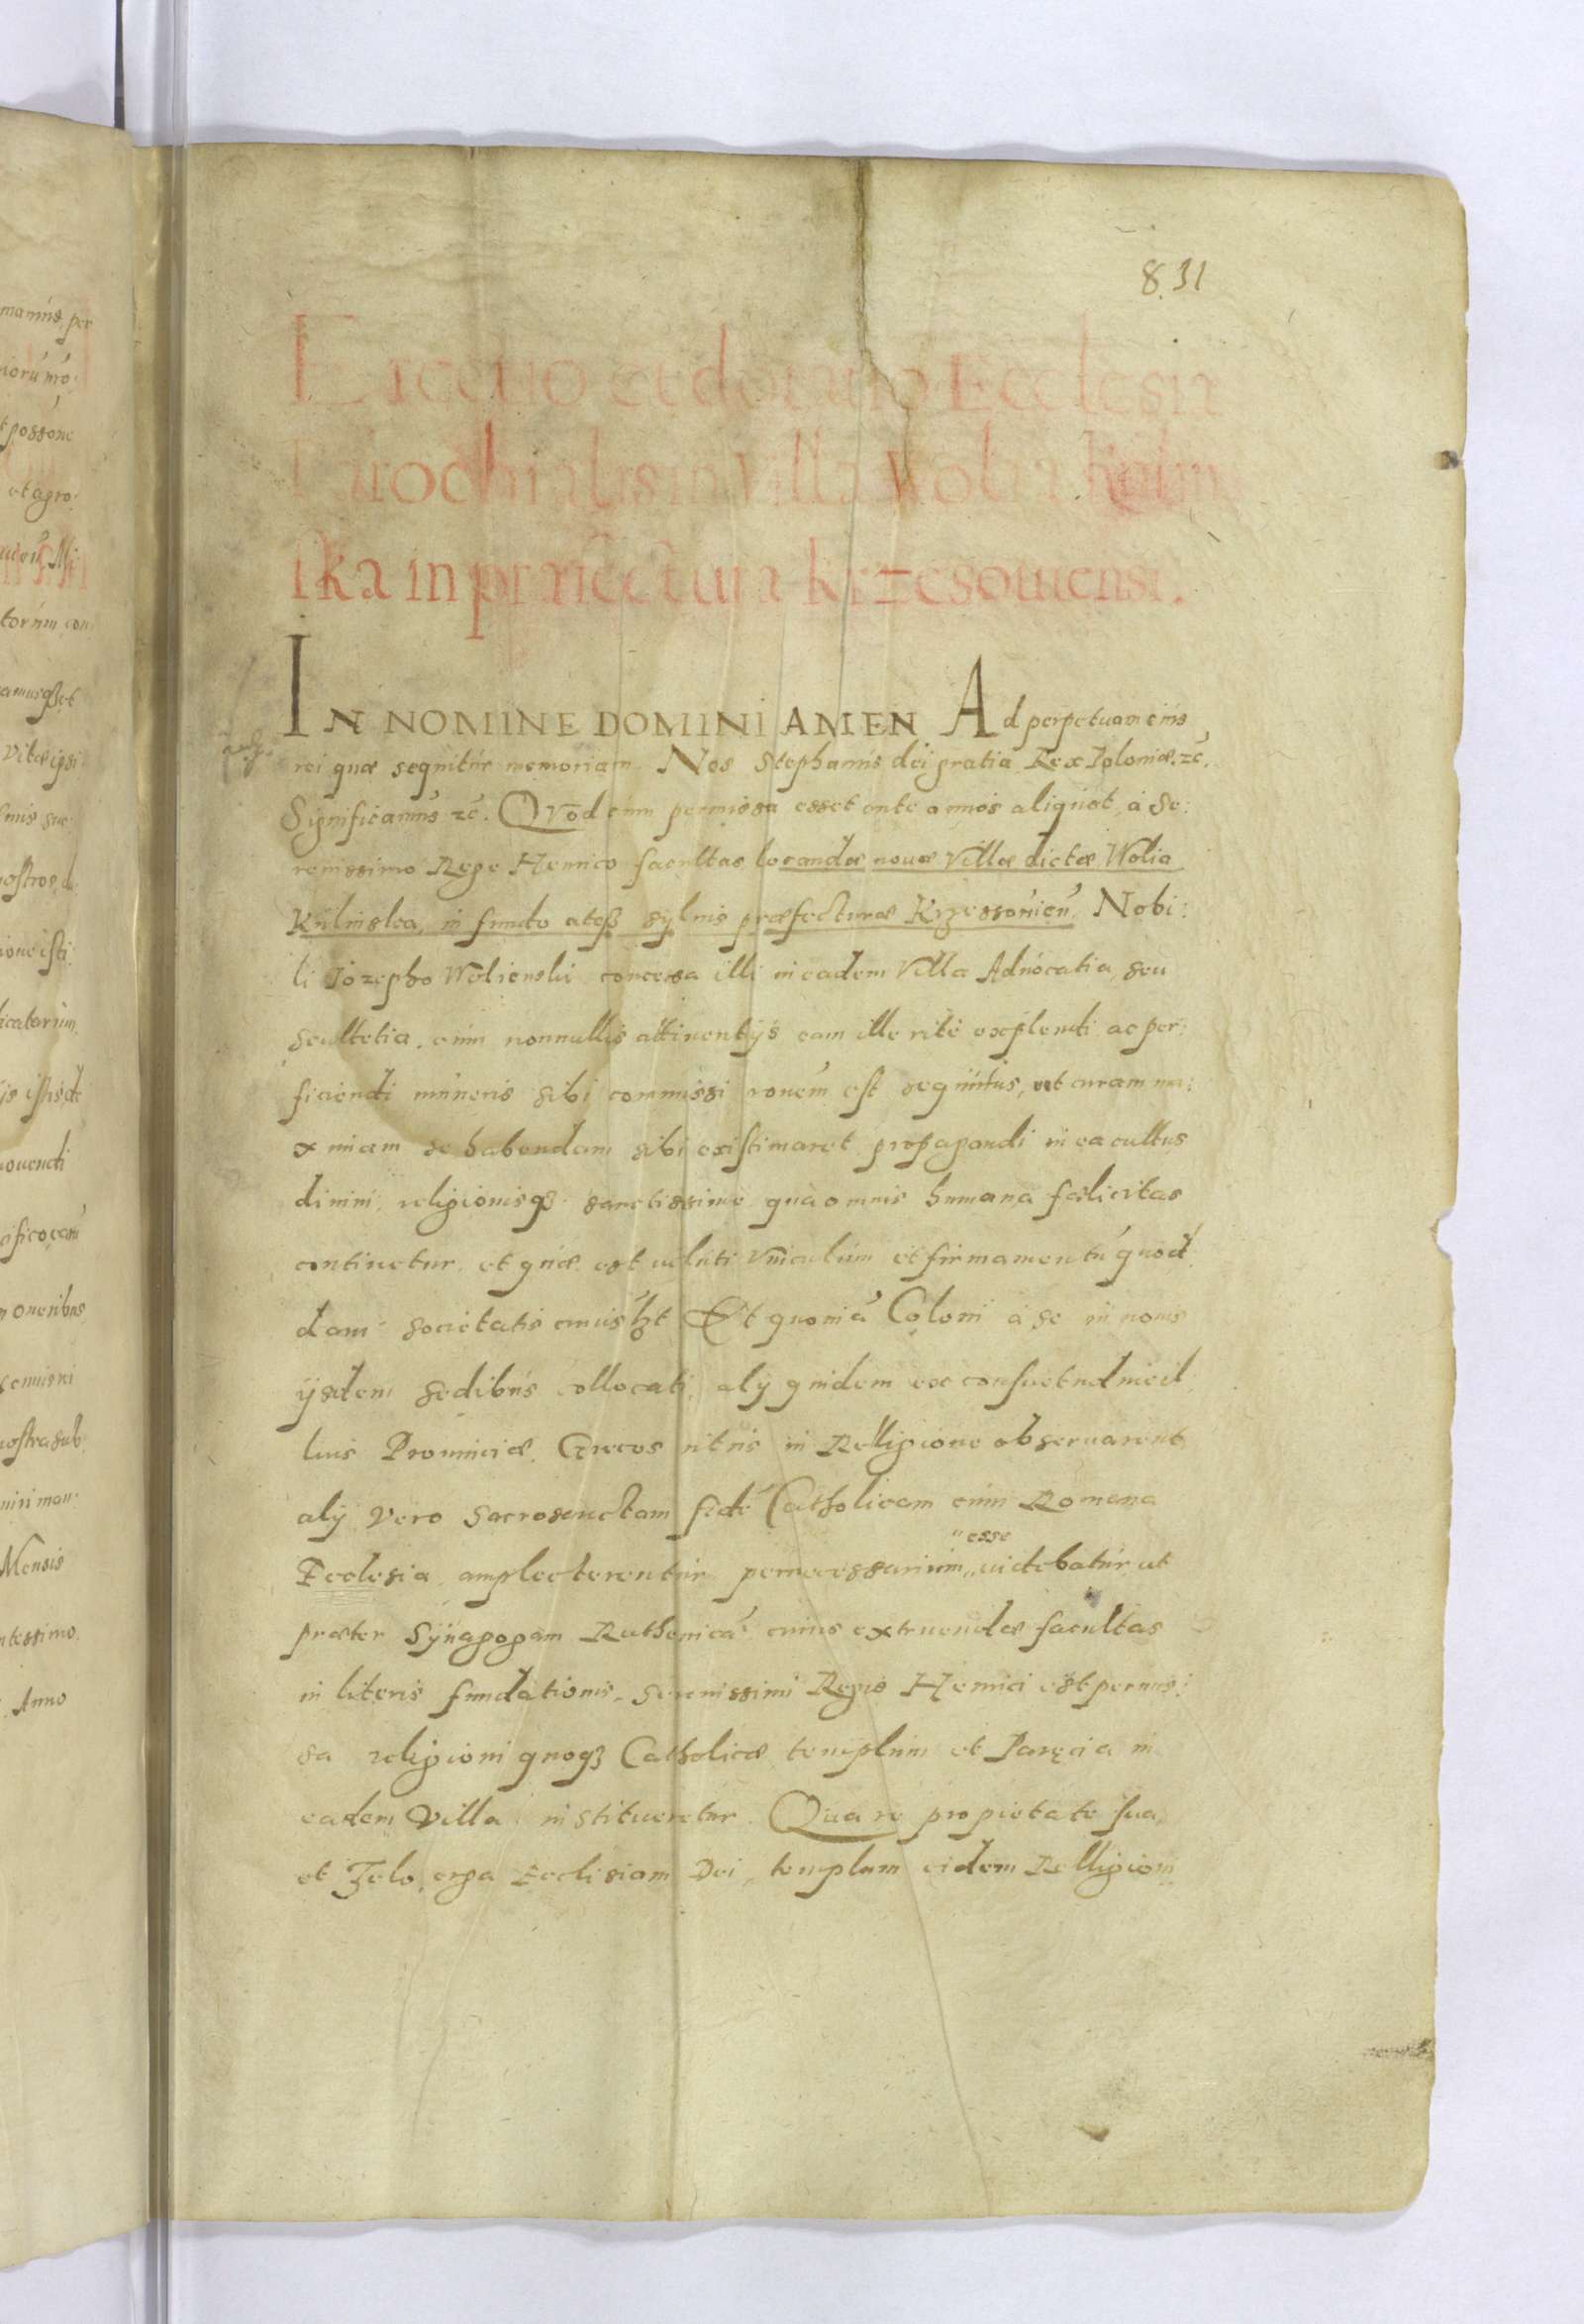 8.31
Erectio et dotatio Ecclesiæ
Parochialis in villa Wolia Kulin
ska in præfectura krzesouiensi.
IN NOMINE DOMINI AMEN Ad perpetuam eius
rei quæ sequitur memoriam. Nos Stephanus dei gratia Rex Poloniæ. zc̃.
Significamus zc̃. Qvod cum permissa esset ante annos aliquot, à Se:
renissimo Rege Henrico facultas locandæ nouæ Villæ dictæ Wolia
Kulinska, in fundo atq̃ syluis præfecturæ Krzessouien̄. Nobi:
li Jozepho Wolienski concessa illi in eadem Villa Aduocatia, seu
scultetia, cum nonnullis attinentijs eam ille ritè explendi ac per:
ficiendi muneris sibi commissi ronem̄ est sequutus, ut curam ma:
ximam se habendam sibi existimaret propagandi in ea cultus
diuini, religionisq̃ sanctissimè qua omnis humana fælicitas
continetur, et quæ est veluti vinculum et firmamentū quod
dam societatis cuiuslꝫt Et quoniā Coloni à se in nouis
ijsdem sedibus collocati, alij quidem ex consuetudine il
lius Prouinciæ Græcos ritus in Relligione obseruarent
alij vero sacrosanctam fidē Catholicam cum Romana
Ecclesia amplecterentur pernecessarium „esse„ uidebatur ut
præter Synagogam Ruthenicā cuius extruendæ facultas
in literis fundationis Serenissimi Regis Henrici est permis:
sa religioni quoqꝫ Catholicæ templum et Paręcia in
eadem Villa institueretur. Quare pro pietate sua
et Zelo erga Ecclesiam Dei, templum eidem Relligioni